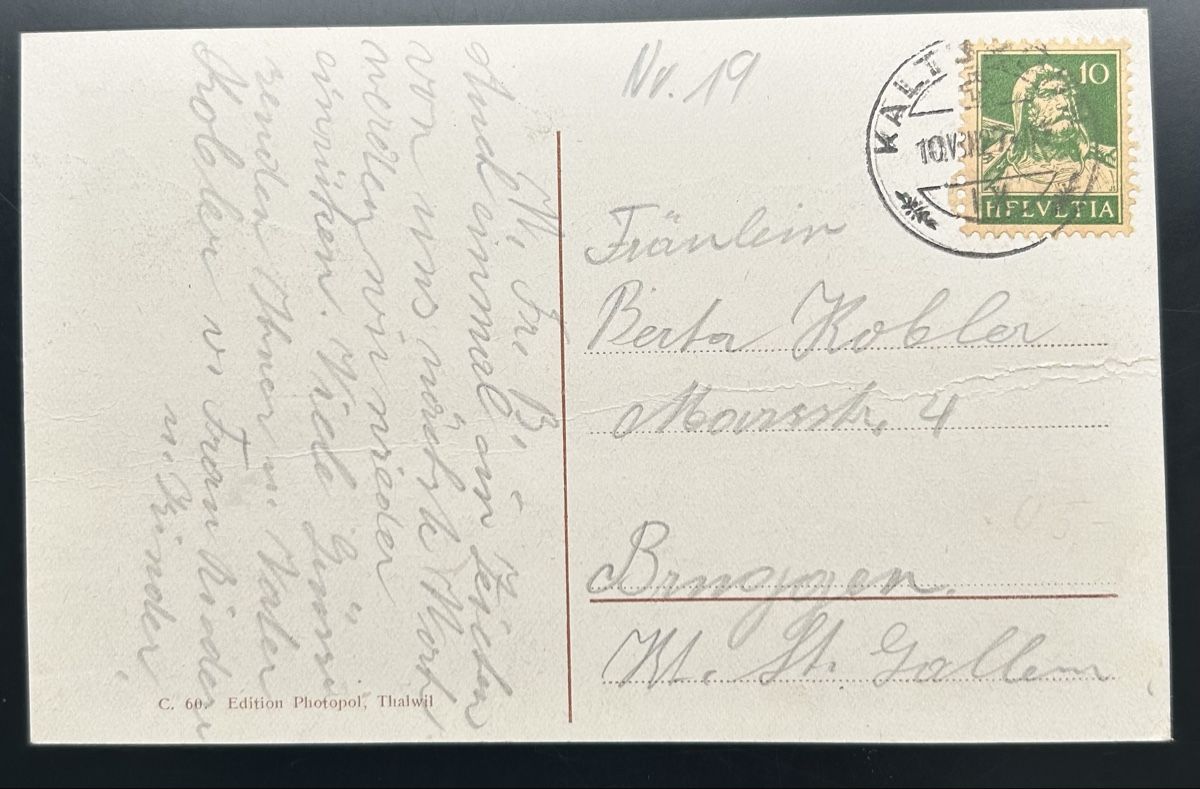 Nr. 19
KALT
10
HELVETIA
Fräulein
Berta Kobler
Marsstr. 4
Bruggen.
Kt. St. Gallen
M. Fr. B.
Auch einmal ein
von uns
werden wir wieder
einrücken. Viele Grüsse
senden Abner u. Vater
Kobler u. Frau Kinder
u. Kinder
C. 60. Edition Photopol, Thalwil